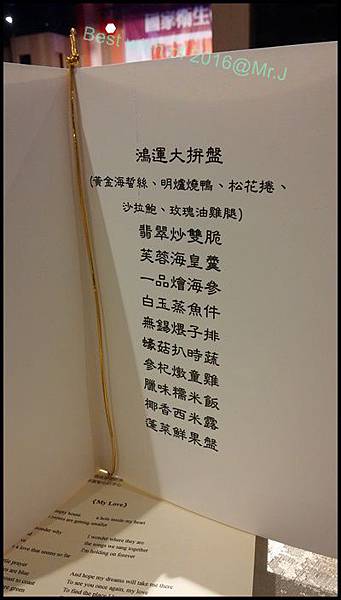 國家衛生
Best
2016@Mr.J
鴻運大拼盤
(黃金海蜇絲、明爐燒鴨、松花捲、
沙拉鮑、玫瑰油雞腿)
翡翠炒雙脆
芙蓉海皇羹
一品燴海參
白玉蒸魚件
無錫煨子排
蠔菇扒時蔬
參杞燉童雞
臘味糯米飯
椰香西米露
蓬萊鮮果盤
《My Love》
empty house a hole inside my heart
rooms are getting smaller
wonder why I wonder where they are
the songs we sang together
a love that seems so far I'm holding on forever
little prayer And hope my dreams will take me there
es are blue To see you once again, my love
coast to coast To find the place I